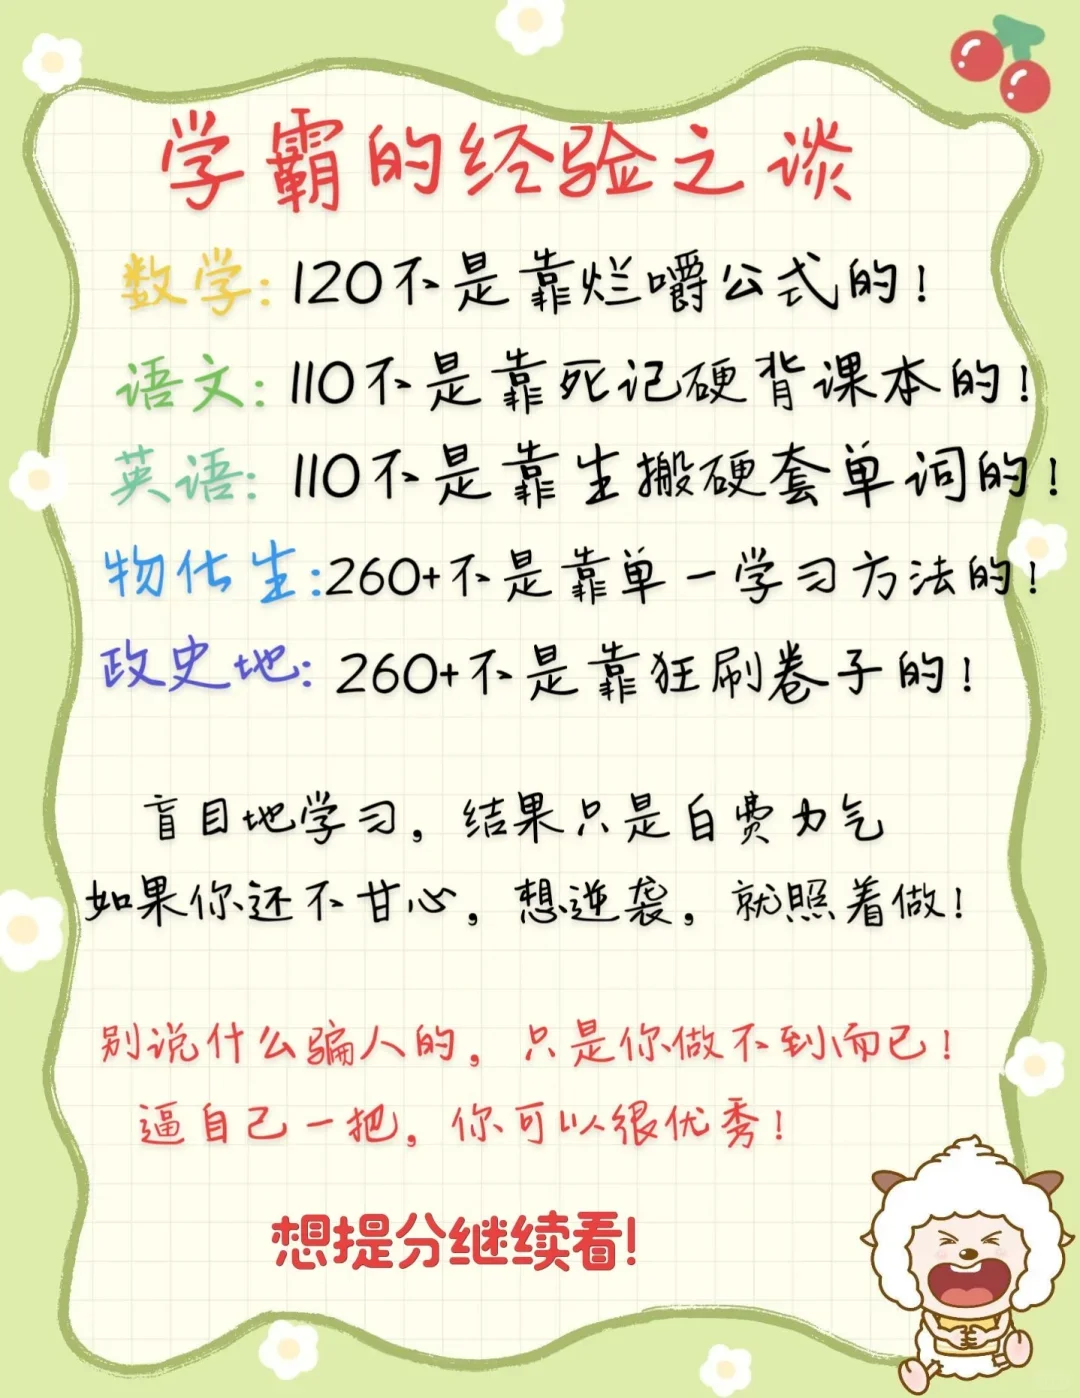 学霸的经验之谈
数学：120不是靠烂嚼公式的！
语文：110不是靠死记硬背课本的！
英语：110不是靠生搬硬套单词的！
物化生：260+不是靠单一学习方法的！
政史地：260+不是靠狂刷卷子的！
盲目地学习，结果只是白费力气
如果你还不甘心，想逆袭，就照着做！
别说什么骗人的，只是你做不到而已！
逼自己一把，你可以很优秀！
想提分继续看！